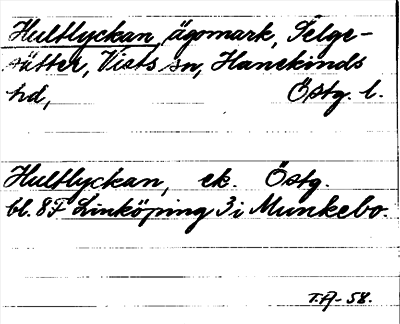 Hultlyckan, ägomark, Felge-
sätter, Vists sn, Hanekinds
hd, Östg. l.
Hultlyckan, ek. Östg.
bl. 8F Linköping 3i Munkebo.
T.A-58.